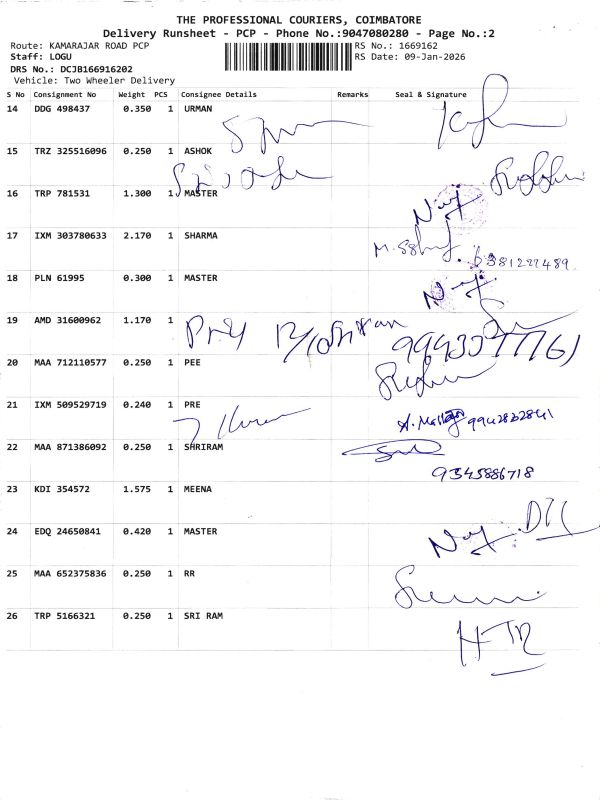 THE PROFESSIONAL COURIERS, COIMBATORE
Delivery Runsheet - PCP - Phone No.:9047080280 - Page No.:2
Route: KAMARAJAR ROAD PCP
RS No.: 1669162
Staff: LOGU
RS Date: 09-Jan-2026
DRS No.: DCJB166916202
Vehicle: Two Wheeler Delivery
S No Consignment No Weight PCS Consignee Details Remarks Seal & Signature
14 DDG 498437 0.350 1 URMAN
15 TRZ 325516096 0.250 1 ASHOK
16 TRP 781531 1.300 1 MASTER
17 IXM 303780633 2.170 1 SHARMA
18 PLN 61995 0.300 1 MASTER
19 AMD 31600962 1.170 1
20 MAA 712110577 0.250 1 PEE
21 IXM 509529719 0.240 1 PRE
22 MAA 871386092 0.250 1 SHRIRAM
9345886718
23 KDI 354572 1.575 1 MEENA
24 EDQ 24650841 0.420 1 MASTER
25 MAA 652375836 0.250 1 RR
26 TRP 5166321 0.250 1 SRI RAM